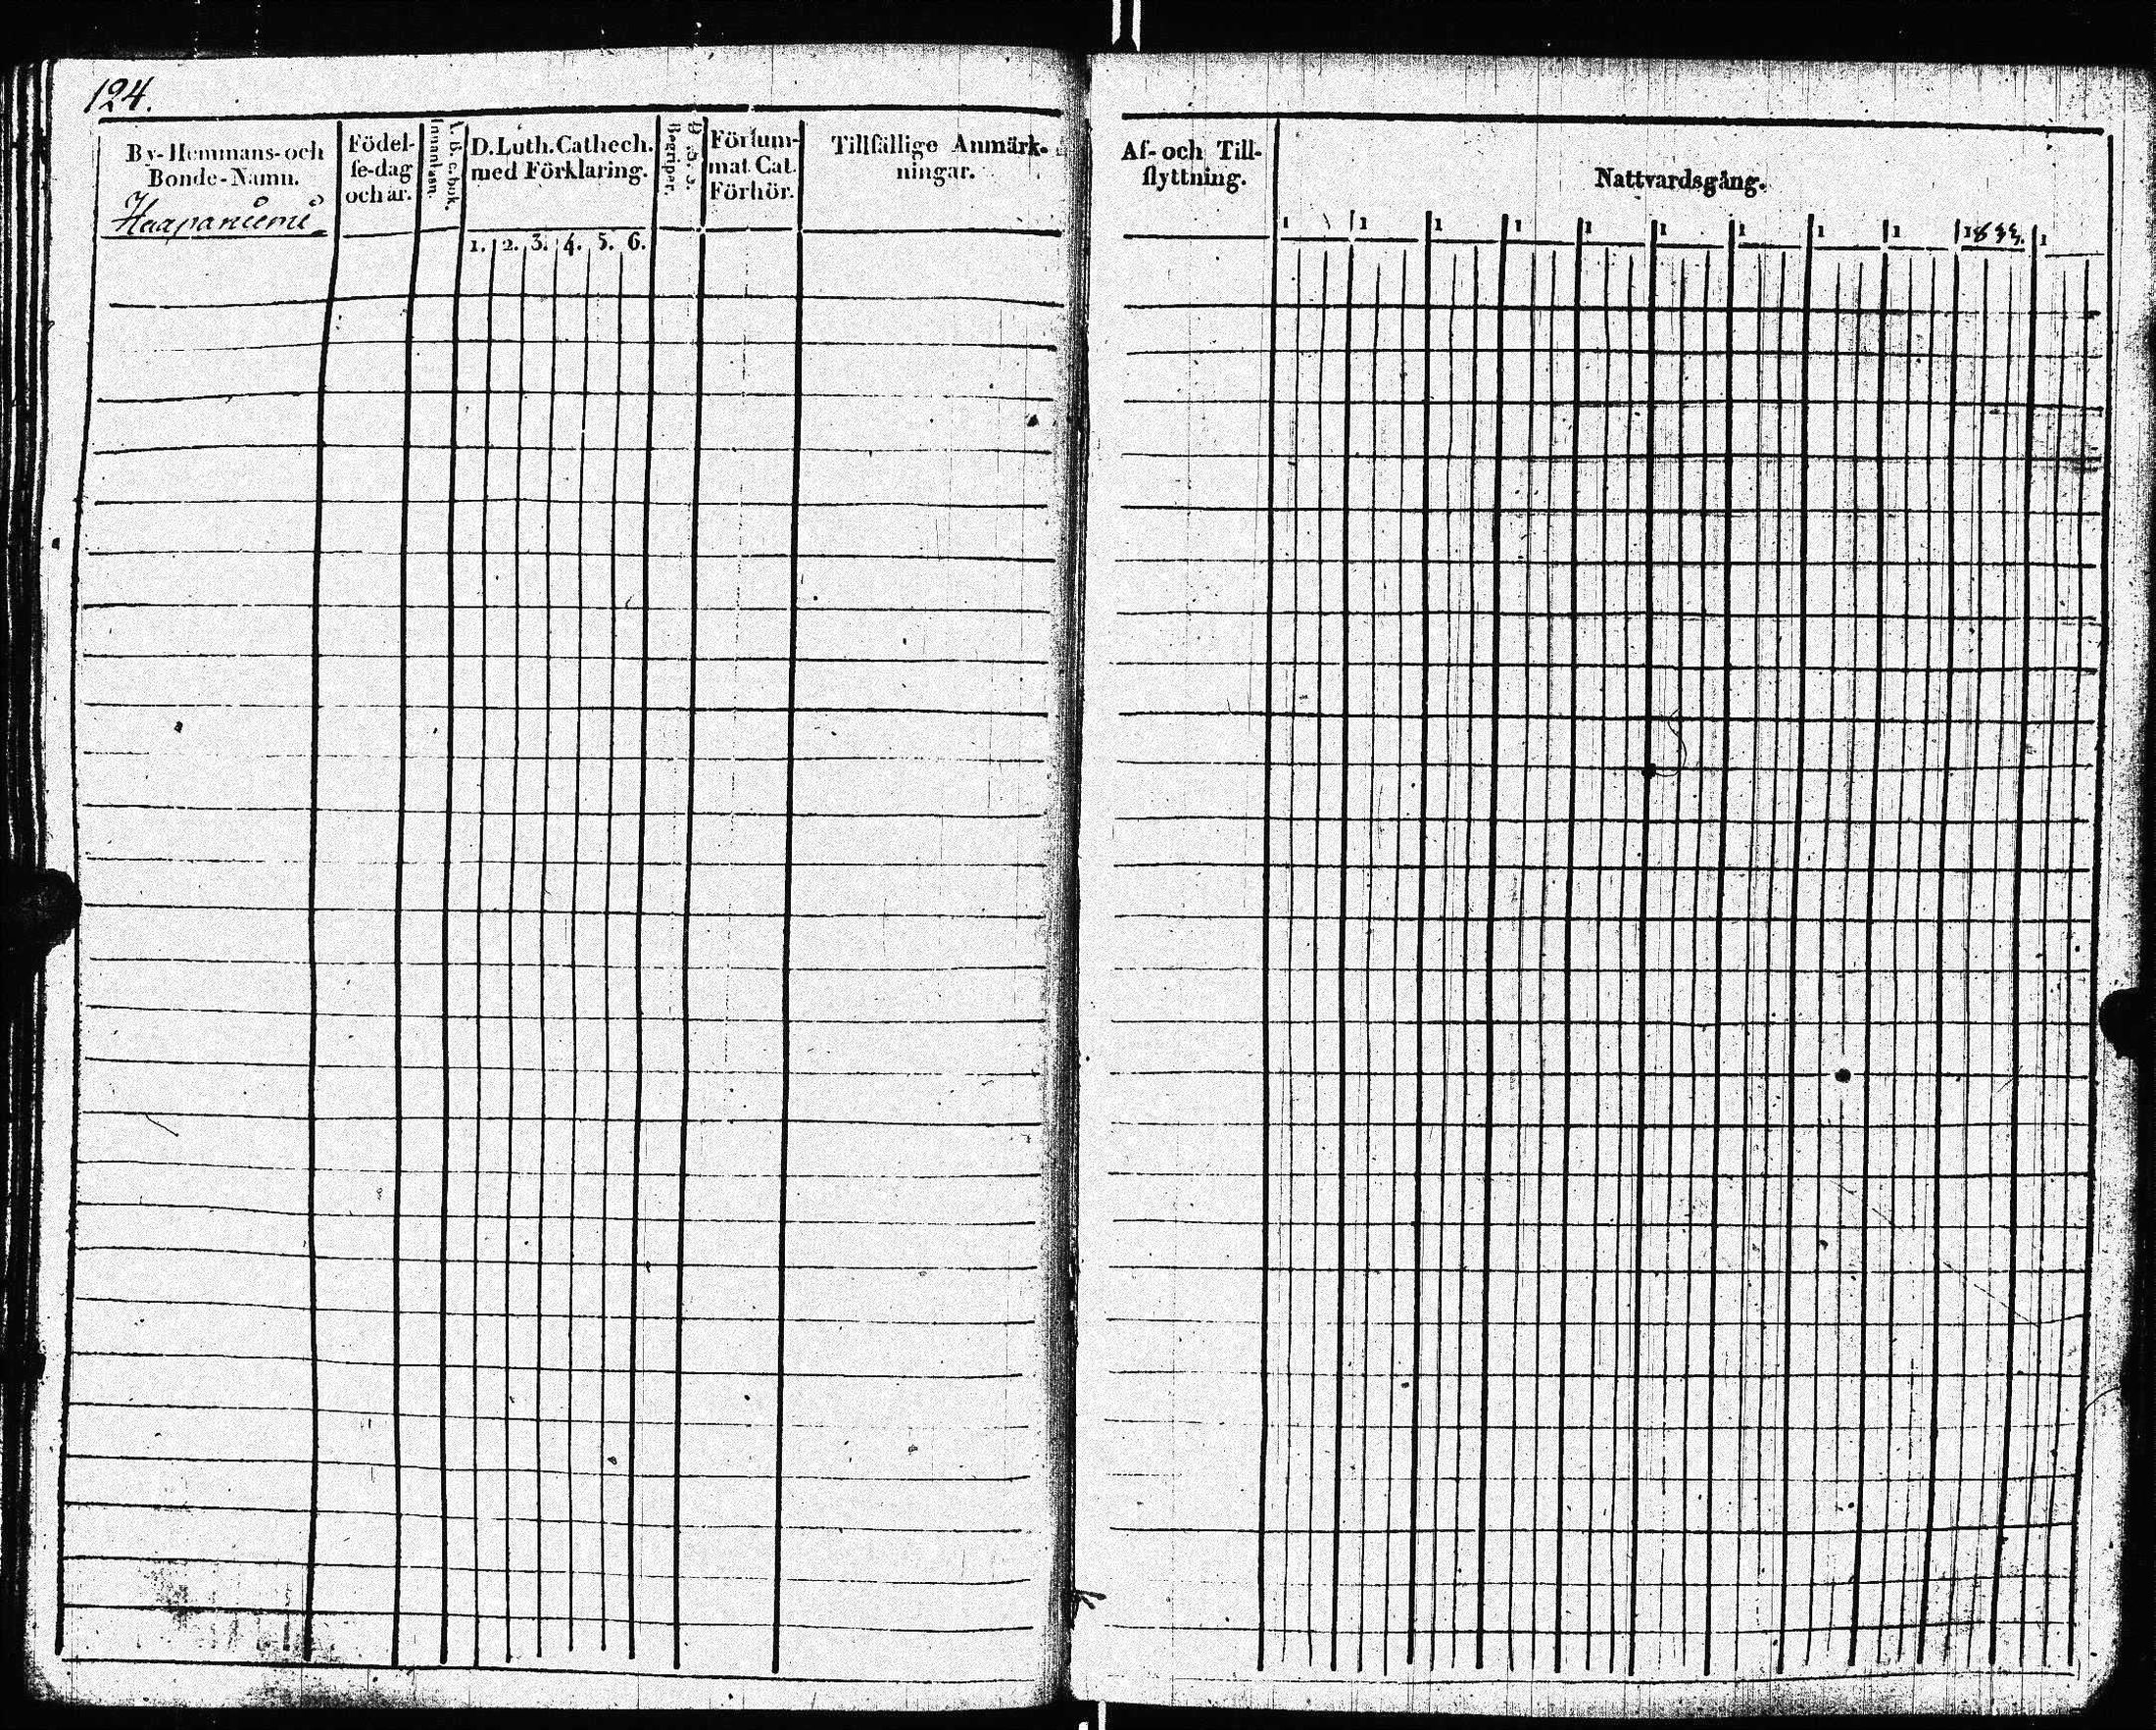 124.
By-Hemmans-och
Bonde-Namn.
Haapaniemi
Födel-
se-dag
och år.
Innanläsn.
A. B. c. bok.
D. Luth. Cathech.
med Förklaring.
1. 2. 3. 4. 5. 6.
Begriper.
Försum-
mat Cat.
Förhör.
Tillfällige Anmärk-
ningar.
Af- och Till-
flyttning.
Nattvardsgång.
1 1 1 1 1 1 1 1 1 1833. 1